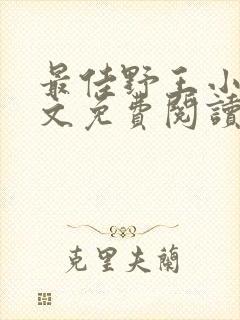 最佳野王小
文免費閱讀
克里夫蘭